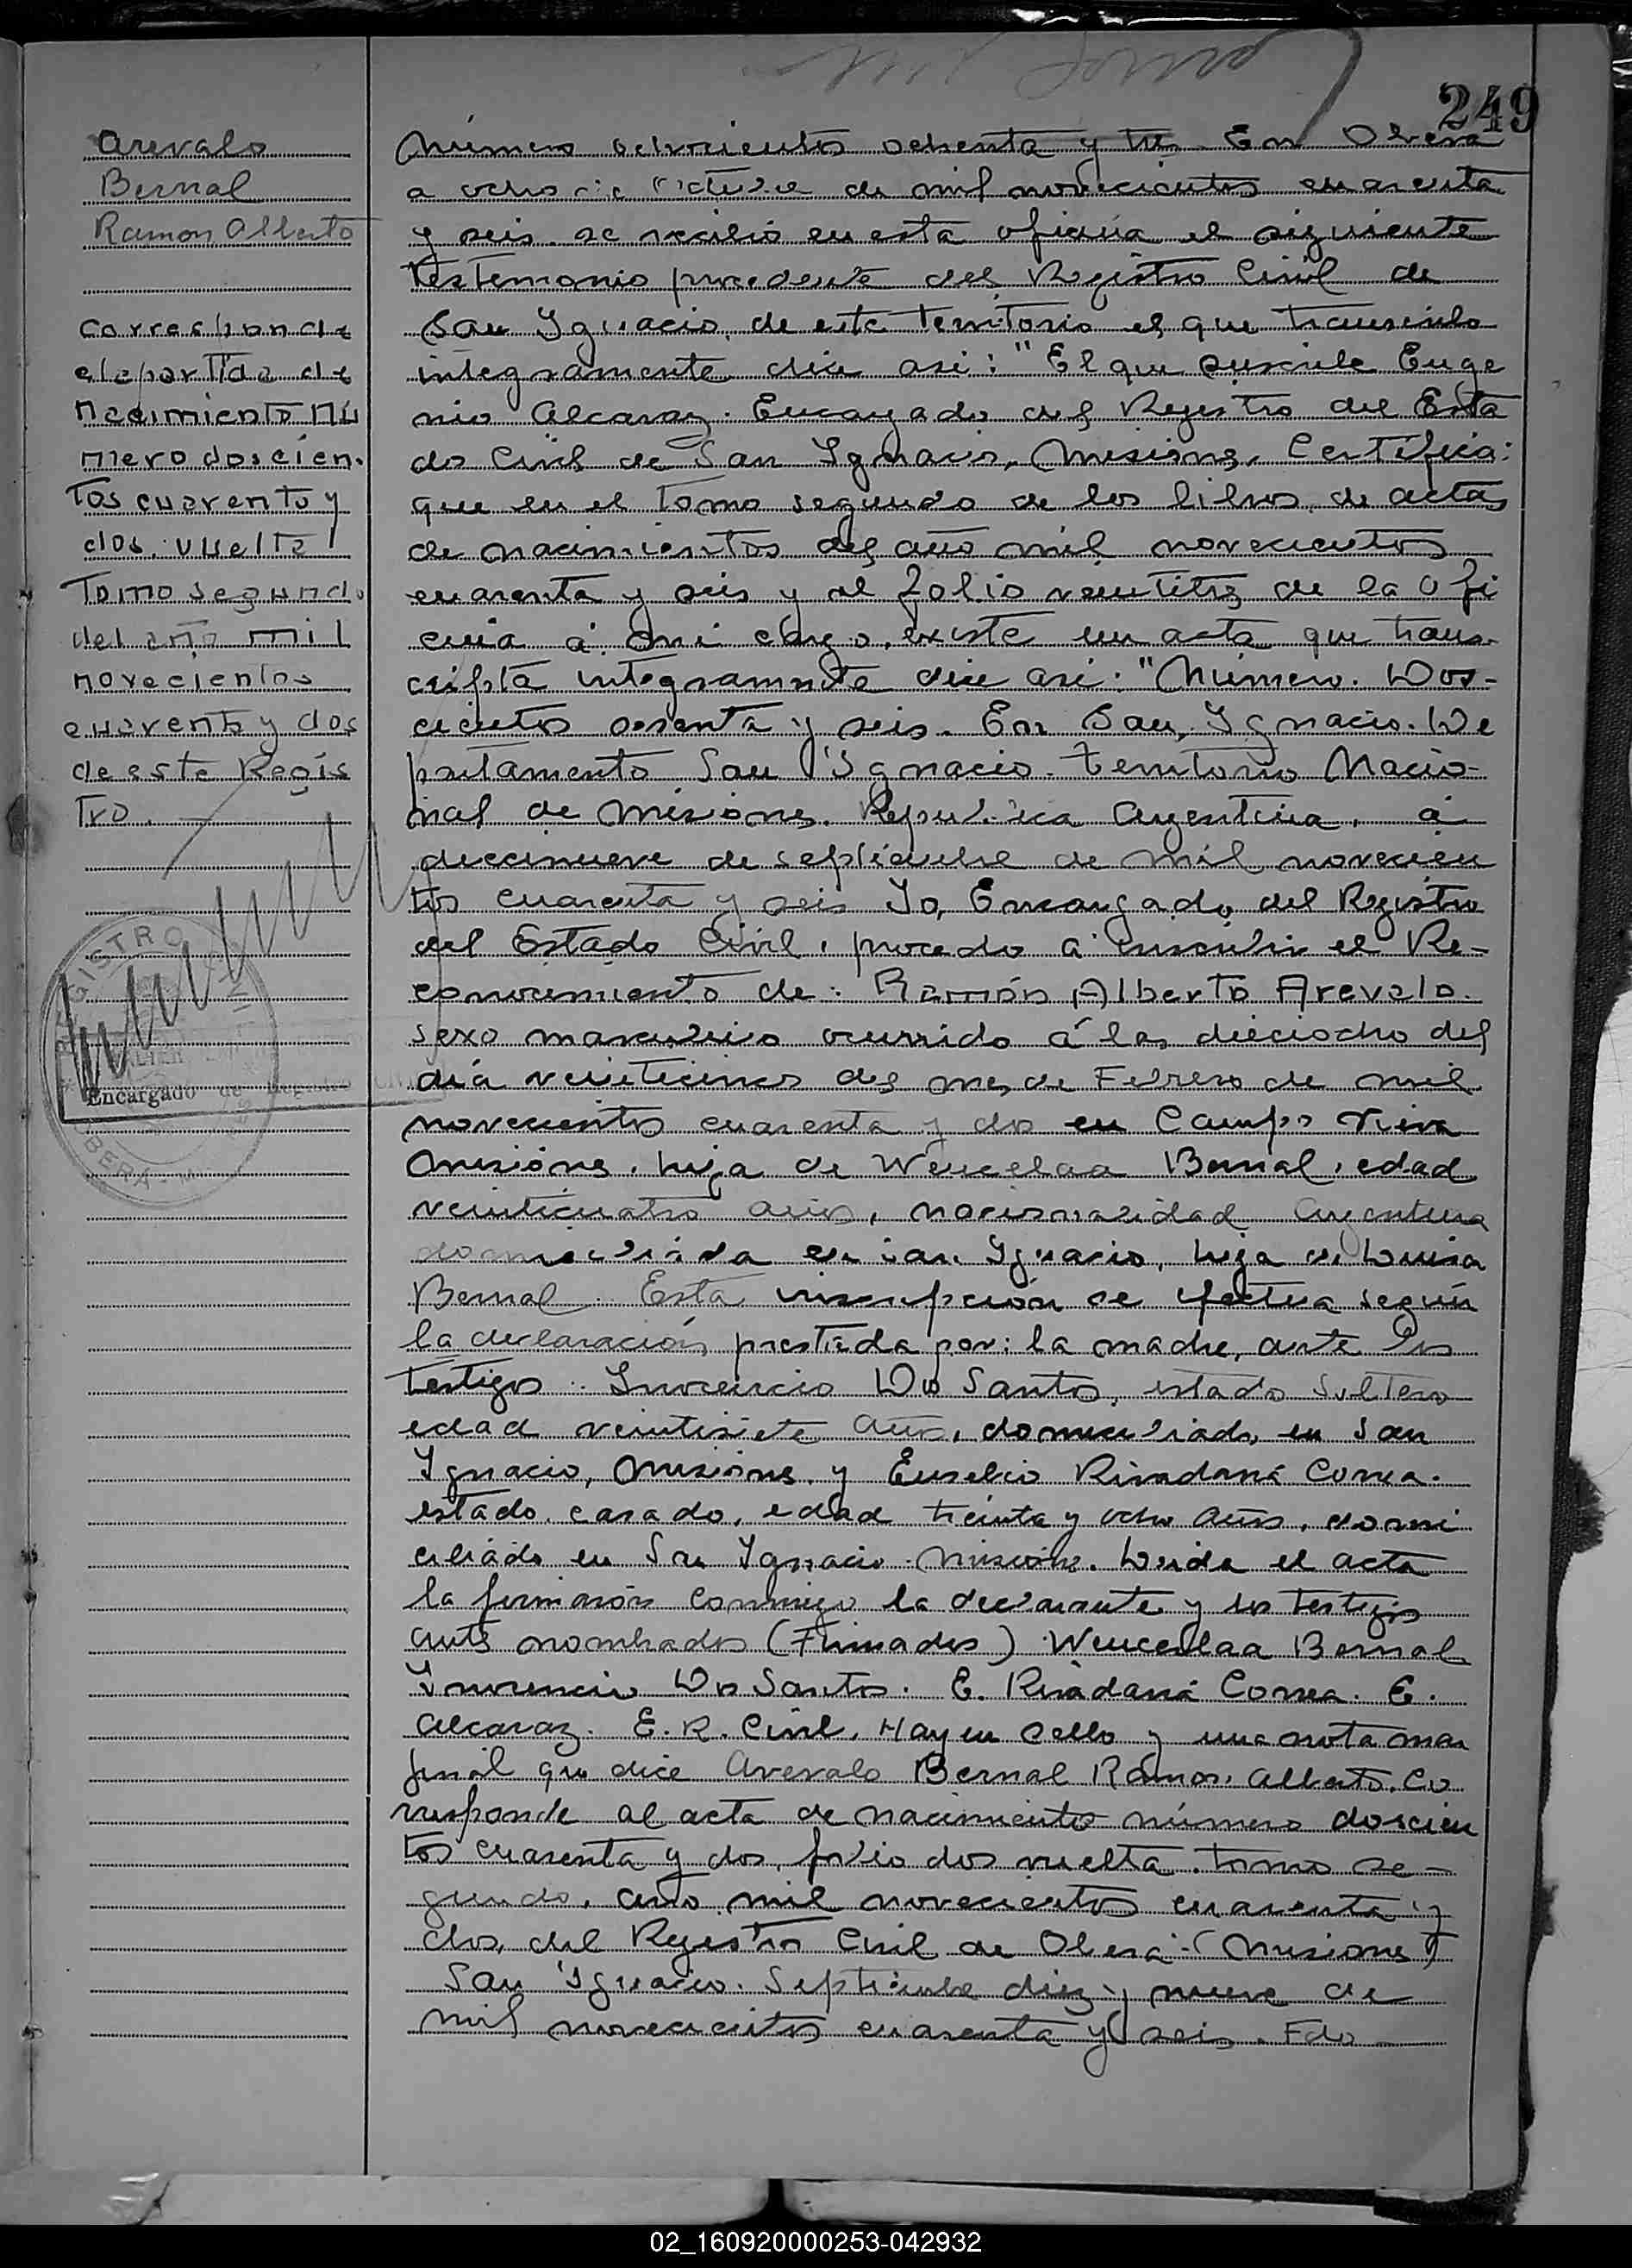 249
Arevalo
Bernal
Ramon Alberto
corresponde
a la partida de
nacimiento nú
mero doscien-
tos cuarenta y
dos. vuelta
Tomo segundo
del año mil
novecientos
cuarenta y dos
de este Regis
tro.
REGISTRO CIVIL
Encargado de Registro
OBERÁ
Número ochocientos ochenta y tres. En Oberá
a ocho de Octubre de mil novecientos cuarenta
y seis. se recibió en esta oficina el siguiente
testemonio procedente del Registro Civil de
San Ignacio, de este territorio el que transcripto
integramente dice asi: "El que suscribe Euge
nio Alcaraz. Encargado del Registro del Esta
do Civil de San Ignacio, Misiones, Certifica:
que en el tomo segundo de los libros de actas
de nacimientos del año mil novecientos
cuarenta y seis y al folio veintitres de la ofi
cina á mi cargo, existe un acta que trans-
cripta integramnte dice asi: "Número. Dos-
cientos sesenta y seis. En San Ignacio. De
partamento San Ignacio. Territorio Nacio-
nal de Misiones. Republica Argentina, á
diecinueve de septiembre de mil novecien
tos cuarenta y seis Yo, Encargado del Registro
del Estado Civil, procedo a inscribir el Re-
conocimiento de: Ramón Alberto Arevalo.
sexo masculino ocurrido á las dieciocho del
día veinticinco del mes de Febrero de mil
novecientos cuarenta y dos en Campo Viera
Misiones, hija de Wencelaa Bernal, edad
veinticuatro años, nacionalidad argentina
domiciliada en San Ignacio, hija de Luisa
Bernal. Esta inscripción se efectua según
la declaración prestada por: la madre, ante los
testigos: Inocencio Dos Santos, estado Soltero
edad veintisiete años, domiciliado en San
Ignacio, Misiones y Eusebio Rivadaná Correa.
estado casado, edad treinta y ocho años, domi
ciliado en San Ignacio Misiones. Leida el acta
la firmarón conmigo la declarante y los testigos
ants nombrados (Firmados) Wencelaa Bernal
Inocencio Dos Santos. E. Rivadaná Correa. E.
Alcaraz. E. R. Civil. Hay un sello y una nota mar
ginal que dice Arevalo Bernal Ramon Alberto. Co
rresponde al acta de nacimiento número doscien
tos cuarenta y dos, folio dos vuelta. tomo se-
gundo, año mil novecientos cuarenta y
dos, del Registro Civil de Oberá-(Misiones)
San Ignacio. Septiembre diez y nueve de
mil novecientos cuarenta y seis. Fdo
02_160920000253-042932